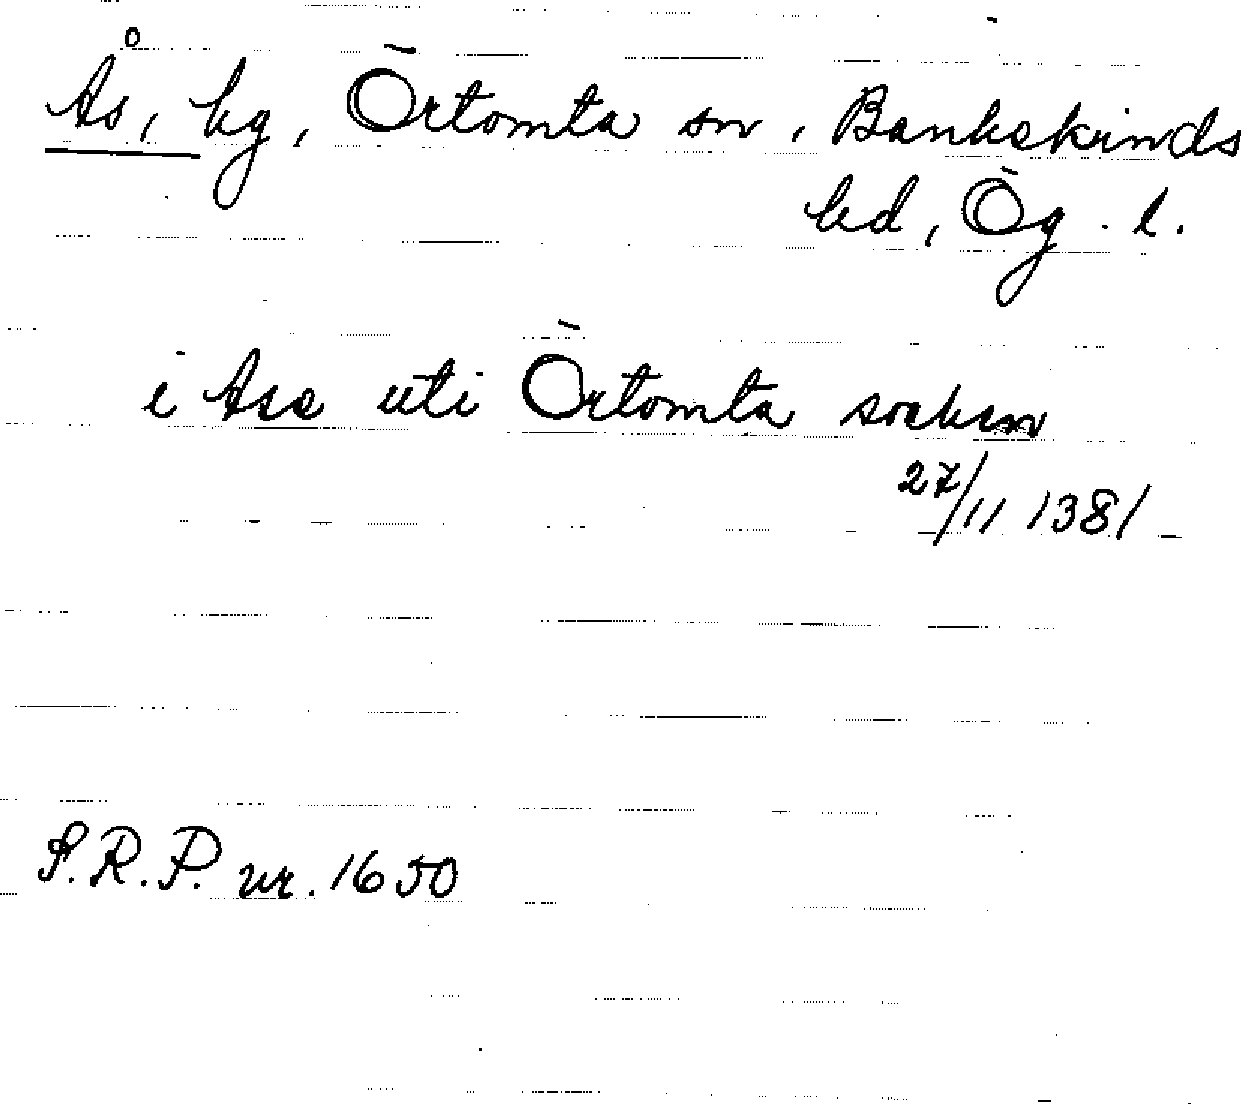 Ås, hg, Örtomta sn, Bankekinds
hd, Ög. l.
i Ase uti Örtomta soeken
27/11 1381
S.R.P. nr. 1650